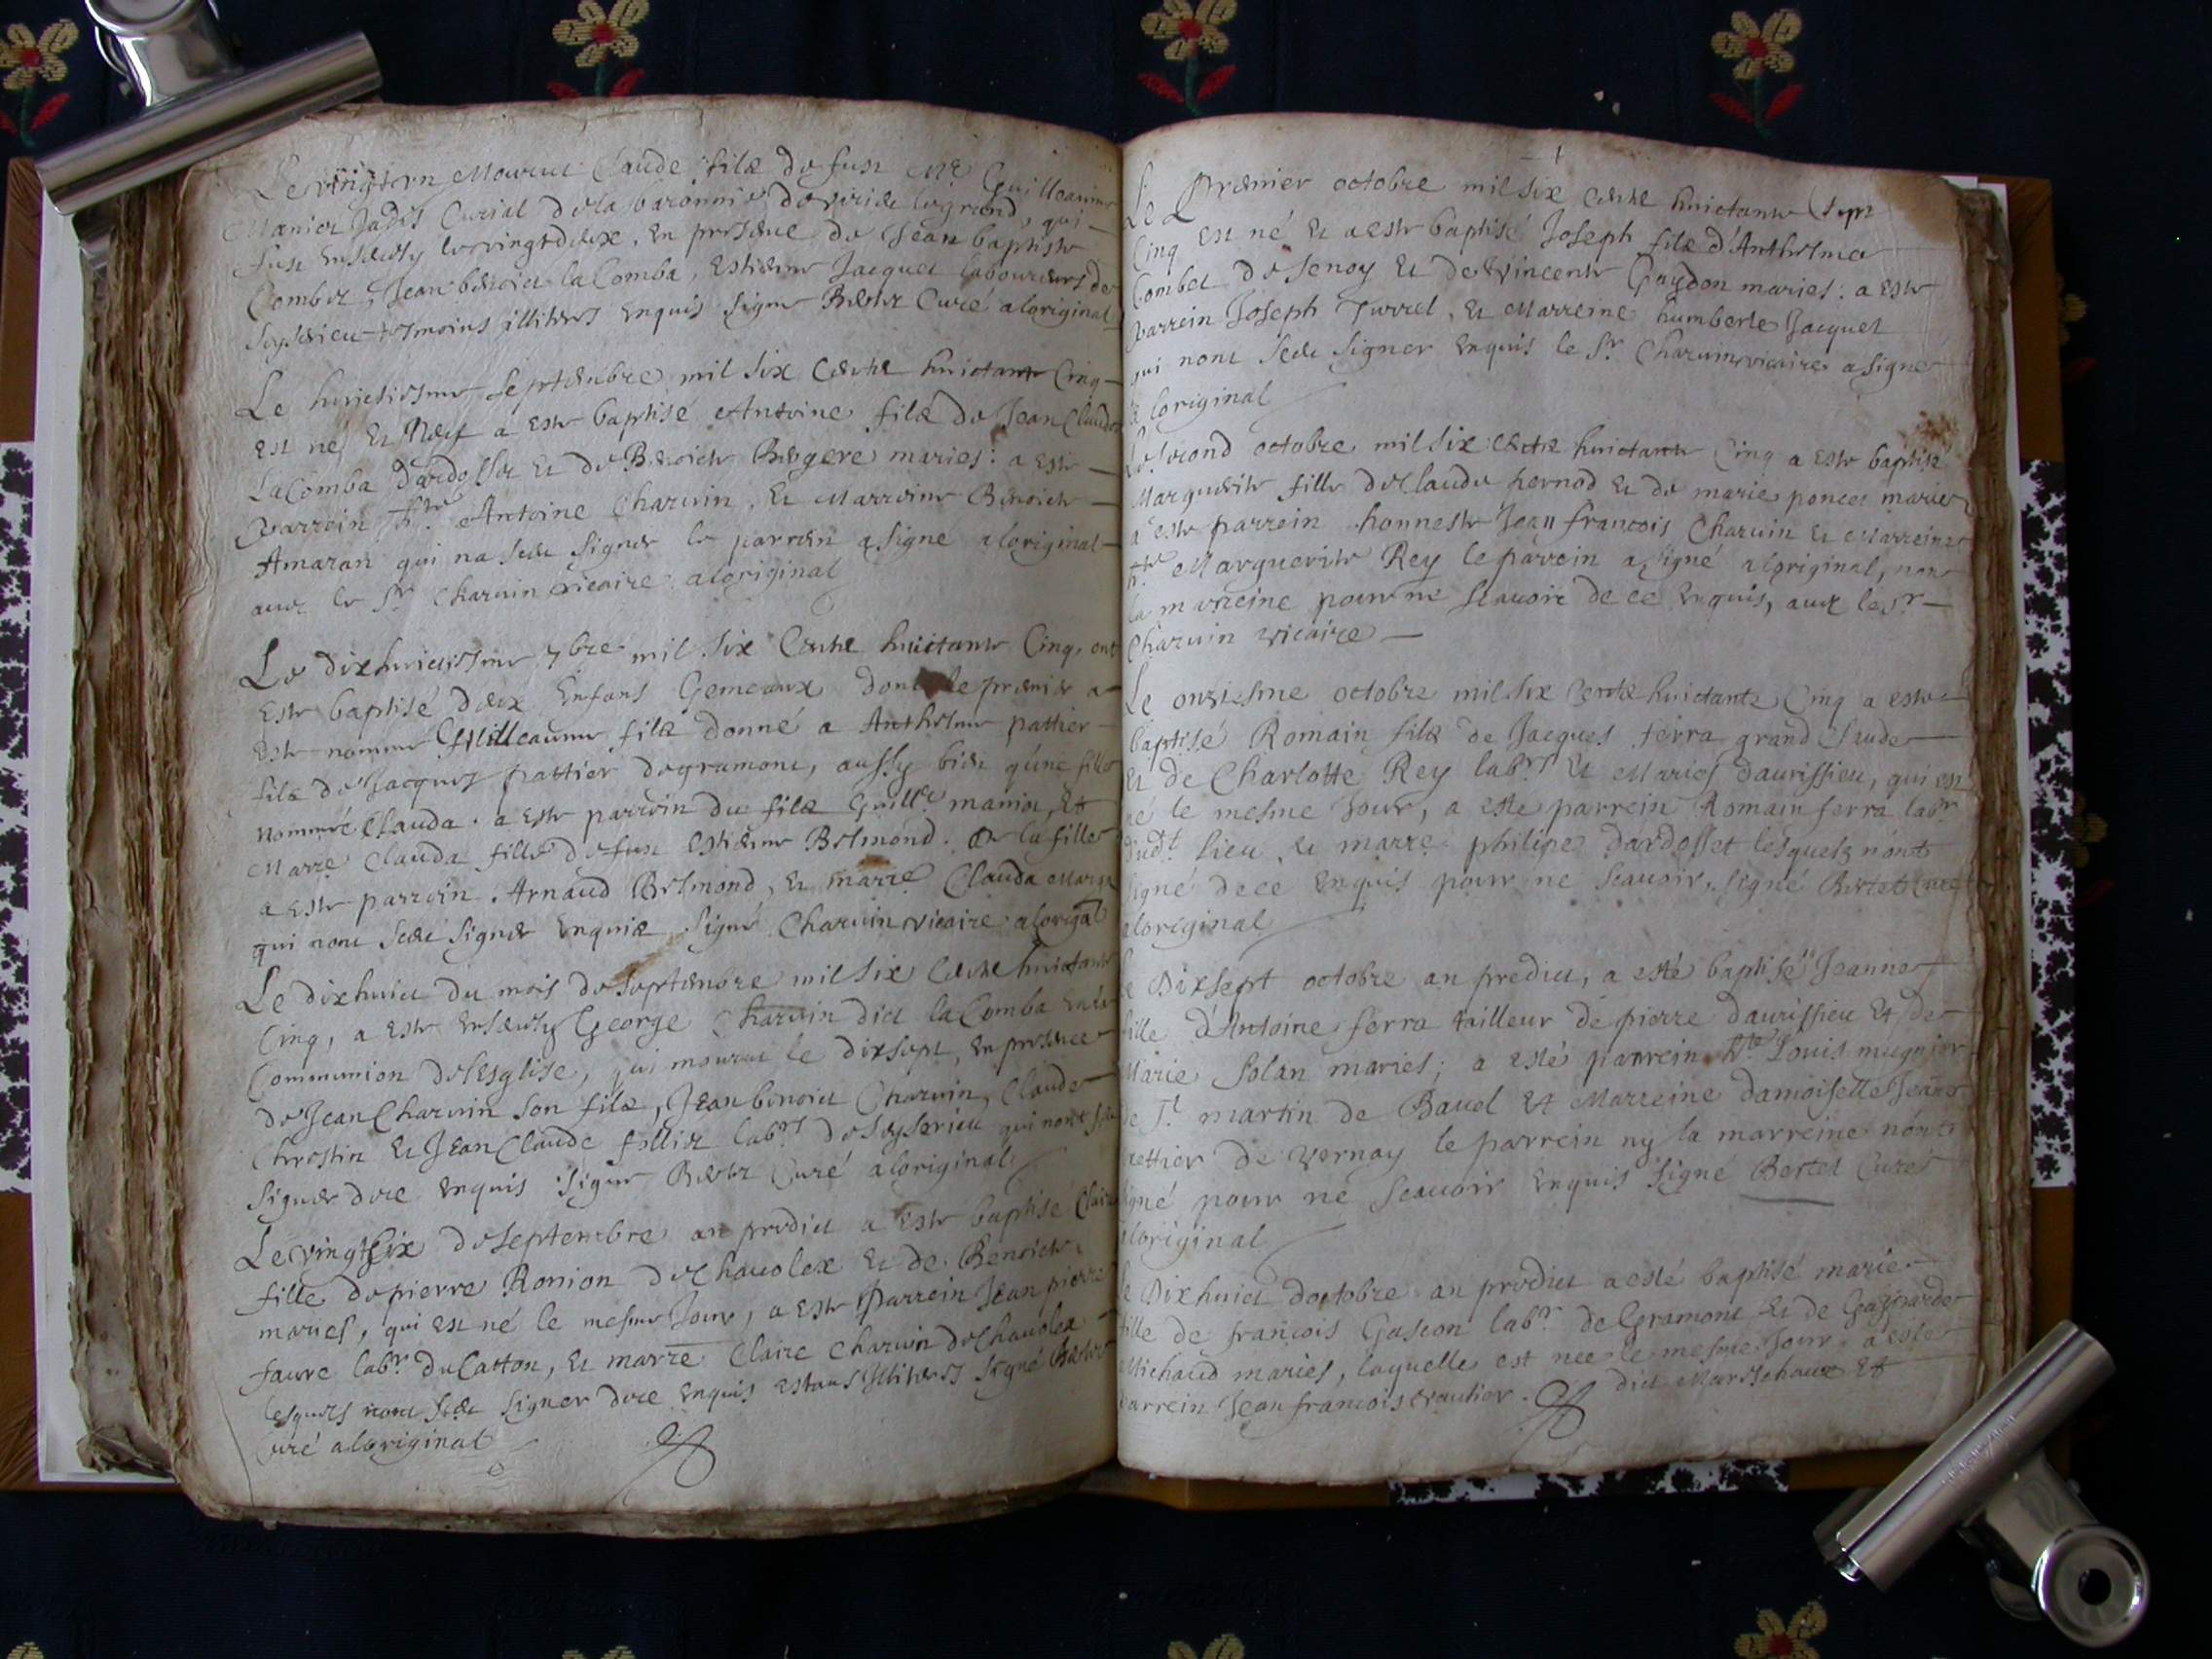 Le vingt en Mourut Claude filz de fust Mre Guilleaume
Manier Jadis Curial de la baronnie de virieu le grand, qui
fust Ensevely le vingtdeux, En presence de Jean baptiste
Combet, Jean benoict la Comba, Estienne Jacquet laboureurs de
Ceyserieu tesmoins illiteres Enquis signe Bertet Curé a loriginal
Le huictiesme septembre mil six Centz huictante Cinq
est né, et Neuf a este baptisé Antoine filz de Jean Claude
La Comba Dardosset et de Benoicte Bergere maries: a este
parrein hte Antoine Charvin, et Marreine Benoicte
Amaran qui na sceu signer le parrein a signe a loriginal
avec le Sr Charvin vicaire a loriginal
Le dixhuictiesme 7bre mil six Centz huictante Cinq, ont
este baptisé deux Enfans Gemeaux dont le premier a
este nomme Guilleaume filz donné a Anthelme pattier
filz de Jacques pattier de gramont, aussy bien q'une fille
nommé Clauda. a este parrein du filz Guille manier, et
Marre Clauda fille de fust Estienne Belmond. et la fille
a este parrein Arnaud Belmond, et marre Clauda
qui nont sceu signer Enquis signe Charvin vicaire a lorigal
Le dixhuict du mois de septembre mil six Centz huictante
Cinq, a este Ensevely George Charvin dict la Comba En la
Communion de lesglise, qui mourut le dixsept, En presence
de Jean Charvin son filz, Jean benoict Charvin, Claude
Chrestin et Jean Claude fillier labrs de Ceyserieu qui nont sceu
signer de ce Enquis signe Bertet Curé a loriginal
Le vingtsix de septembre an predict a este baptisé Claire
fille de pierre Ronion de Chavolex et de Benoicte
maries, qui est né le mesme Jour, a este parrein Jean pierre
faure labr du Catton, et marre Claire Charvin de Chavolex
lesquels nont sceu signer de ce Enquis estans Illiteres signé Bertet
Curé a loriginal
Le Premier octobre mil six Centz huictante
Cinq est né et a este baptisé Joseph filz d'Anthelme
Combet de senoy et de vincente Gaydon maries: a este
parrein Joseph Turrel, et Marreine humberte Jacquet
qui nont sceu signer Enquis le Sr Charvin vicaire a signe
a loriginal
Le second octobre mil six centz huictante Cinq a este baptisé
Marguerite fille de Claude hernod et de marie poncet maries
a este parrein honneste Jean francois Charvin et Marreine
hte Marguerite Rey le parrein a signé a loriginal, non
la marreine pour ne scavoir de ce Enquis, avec le Sr
Charvin vicaire
Le onziesme octobre mil six Centz huictante Cinq a este
baptisé Romain filz de Jacques ferra grand Claude
et de Charlotte Rey labrs et Maries daurissieu, qui est
né le mesme Jour, a este parrein Romain ferra labr
dudt lieu et marre philipe Dardosset lesquelz nont
signé de ce Enquis pour ne scavoir, signé Bertet Curé
a loriginal
Le Dixsept octobre an predict, a esté baptisé Jeanne
fille d'Antoine ferra tailleur de pierre daurissieu et de
Marie Solan maries; a esté parrein hte Louis mugnier
de St martin de Bavel et Marreine damoiselle Jeanne
mettier de vernay le parrein ny la marreine nont
signé pour ne scavoir Enquis signe Bertet Curé
a loriginal
Le Dixhuict doctobre an predict a esté baptisé marie
fille de francois Gascon labr de Gramont et de Gasparde
Michaud maries, laquelle est nee le mesme Jour. a este
parrein Jean francois Gautier dict Mareschaux et